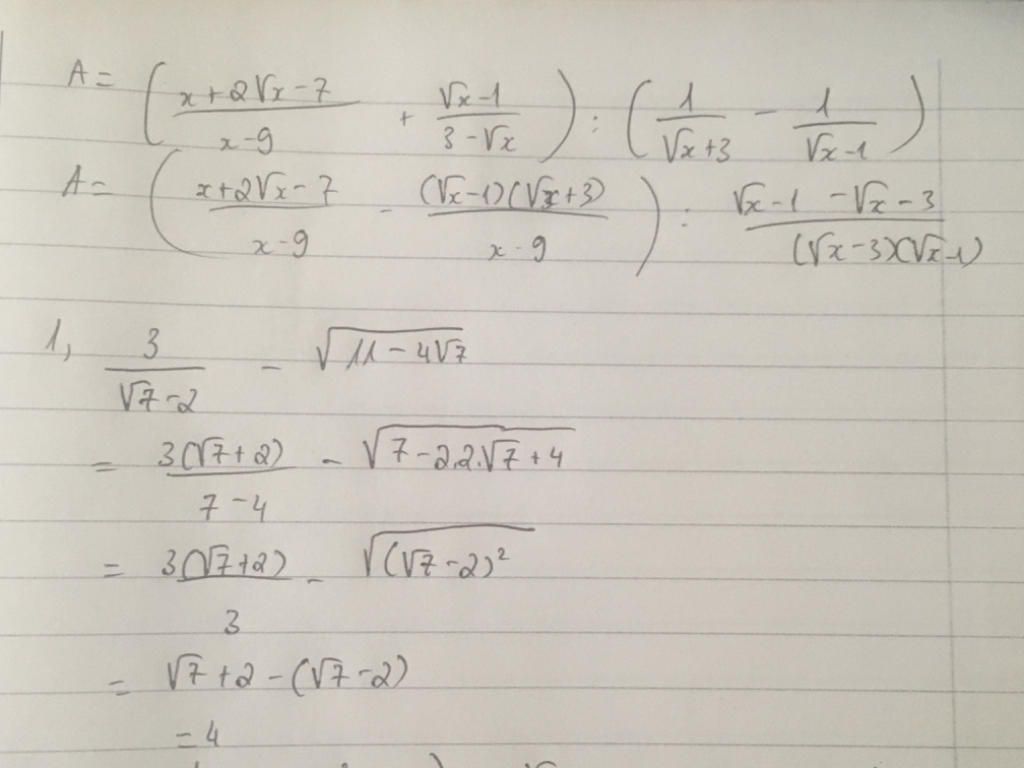 A = ( (x+2√x-7)/(x-9) + (√x-1)/(3-√x) ) : ( 1/(√x+3) - 1/(√x-1) )
A = ( (x+2√x-7)/(x-9) - (√x-1)(√x+3)/(x-9) ) : (√x-1 -√x-3)/((√x-3)(√x-1))
1, 3/(√7-2) - √(11-4√7)
= 3(√7+2)/(7-4) - √(7-2.2.√7+4)
= 3(√7+2)/3 - √((√7-2)²)
= √7+2-(√7-2)
= 4